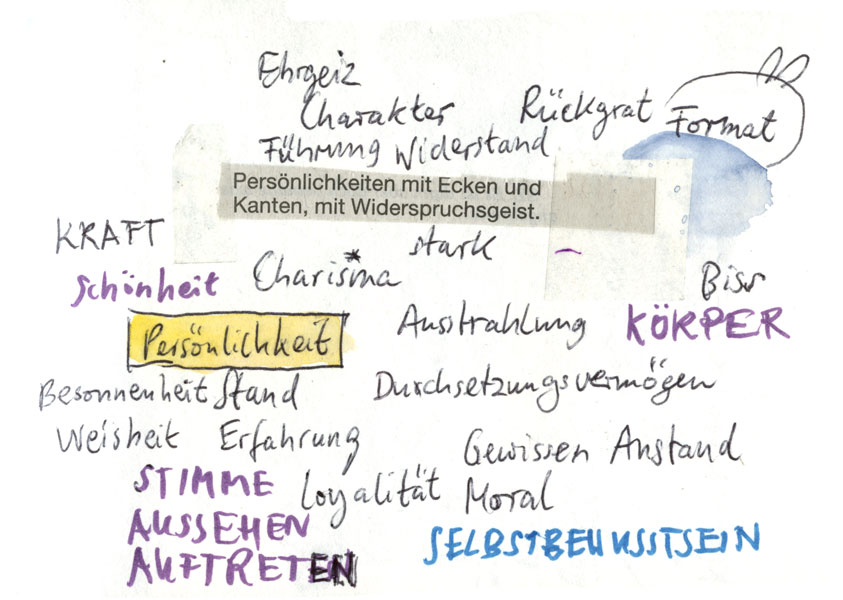 Ehrgeiz
Charakter Rückgrat Format
Führung Widerstand
Persönlichkeiten mit Ecken und
Kanten, mit Widerspruchsgeist.
KRAFT stark
Schönheit Charisma Biss
Persönlichkeit Ausstrahlung KÖRPER
Besonnenheit Stand Durchsetzungsvermögen
Weisheit Erfahrung Gewissen Anstand
STIMME Loyalität Moral
AUSSEHEN SELBSTBEWUSSTSEIN
AUFTRETEN